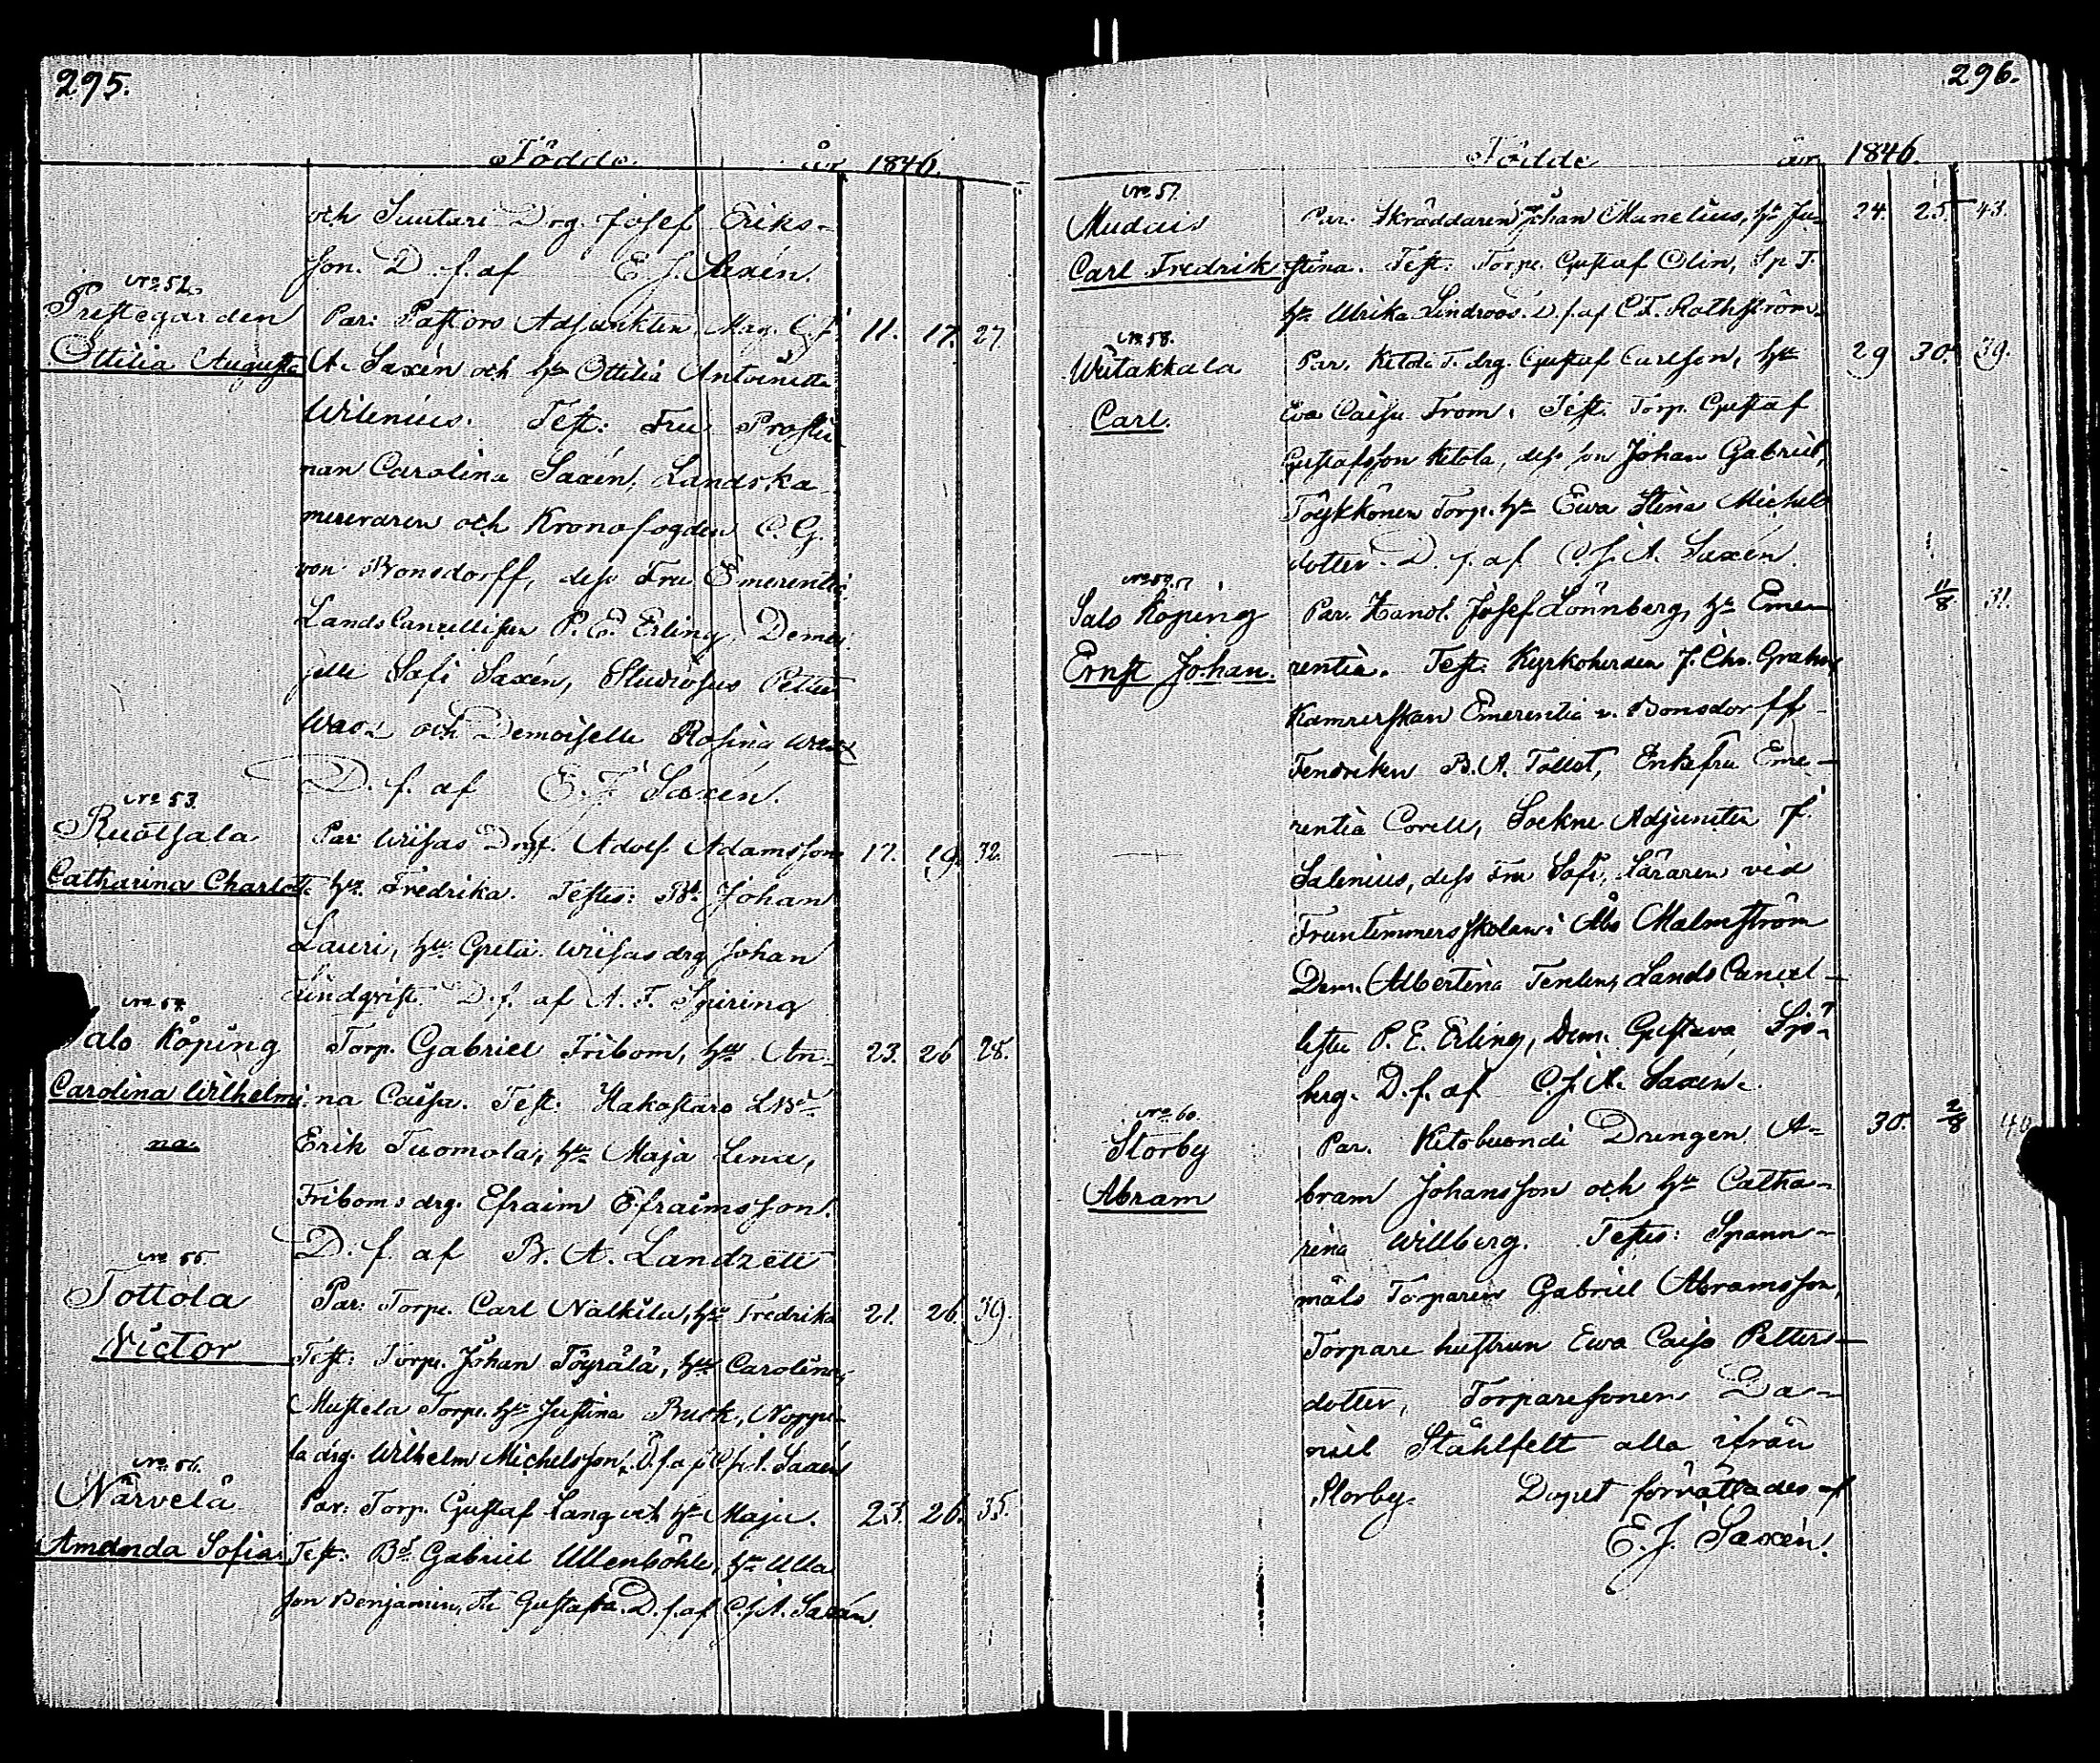 295.
Födde. år 1846.
och Suutari Drg. Josef Eriks-
son. D. f. af E. J. Saxén.
No 52.
Prestegården
Ottilia Augusta
Par: Pastors Adjunkten, Mag. C. J. 11. 17. 27
A. Saxén och hu Ottilia Antoinetta
Wilenius. Test: Fru Prosti-
nan Carolina Saxén, Landska-
mereraren och Kronofogden C. G.
von Bonsdorff, dess Fru Emerentia
Lands Cancellisten P. E. Erling, Demoi-
selle Sofi Saxén, Studiosus Petter
och Demoiselle Rosina
D. f. af E. J. Saxén.
No 53.
Ruotsala
Catharina Charlotta
Par: Wiisas Drg. Adolf Adamsson 17. 19. 32.
hu. Fredrika. Testes: Bd. Johan
Lauri, hu. Greta. Wiisas drg Johan
Lindqvist. D. f. af A. F. Spiring
No 54.
Salo Köping
Carolina Wilhelmi-
na
Torp. Gabriel Fribom, hu An- 23. 26 28.
na Caisa. Test: Hakostaro LBd
Erik Tuomola, hu Maja Lena,
Friboms drg. Efraim Efraimsson.
D. f. af B. A. Landzett
No 55.
Tottola
Victor
Par: Torp. Carl Nälkilä, hu Fredrika 21. 26. 39.
Test: Torp. Johan Töyrälä, hu Carolina,
Mustela Torp. hu Justina Buck, Noppi-
la drg. Wilhelm Michelsson, D. f. af C. J. A. Saxén
No 56.
Närvelä
Amanda Sofia.
Par: Torp. Gustaf Lang och hu Maja. 23. 26. 35.
Test: Bd. Gabriel Ullenböhle, hu Ulla
son Benjamin, Gustafva. D. f. af C. J. A. Saxén.
296.
Födde år 1846.
No 57.
Mudais
Carl Fredrik
Par: Skräddaren Johan Munelius, hu Ju- 24. 25. 43.
stina. Test: Torp. Gustaf Olin, Sp T.
hu Ulrika Lindroos. D. f. af C. F. Rothström.
No 58.
Wiitakkala
Carl.
Par. Ketola T. drg. Gustaf Carlsson, hu 29 30. 39.
Eva Caisa From. Test. Torp. Gustaf
Gustafsson Ketola, dess son Johan Gabriel,
Töykkönen Torp. hu Ewa Stina Michels
dotter. D. f. af C. J. A. Saxén.
No 59.
Salo Köping
Ernst Johan.
Par. Handl. Josef Lönnberg, hu Eme- 11/8 31.
rentia. Test: Kyrkoherden J. Chr. Grahn,
Kamrerskan Emerentia v. Bonsdorff
Fendriken B. A. Tollet, Enkefru Eme-
rentia Corell, Sockne Adjuncten J.
Salenius, dess Fru Sofi, Läraren vid
Fruntimmersskolan i Åbo Malmström
Dem. Albertina Lands Cancel-
listen P. E. Erling, Dem. Gustava Sjö-
berg. D. f. af C. J. A. Saxén.
No 60.
Storby
Abram
Par. Ketobuondi Drengen A- 30. 2/8 40
bram Johansson och hu Catha-
rina Willberg. Testes: Spann-
måls Torparen Gabriel Abramsson,
Torpare hustrun Ewa Caisa Petters-
dotter, Torparesonen Da-
niel Ståhlfelt alla ifrån
Storby. Dopet förrättades af
E. J. Saxén.